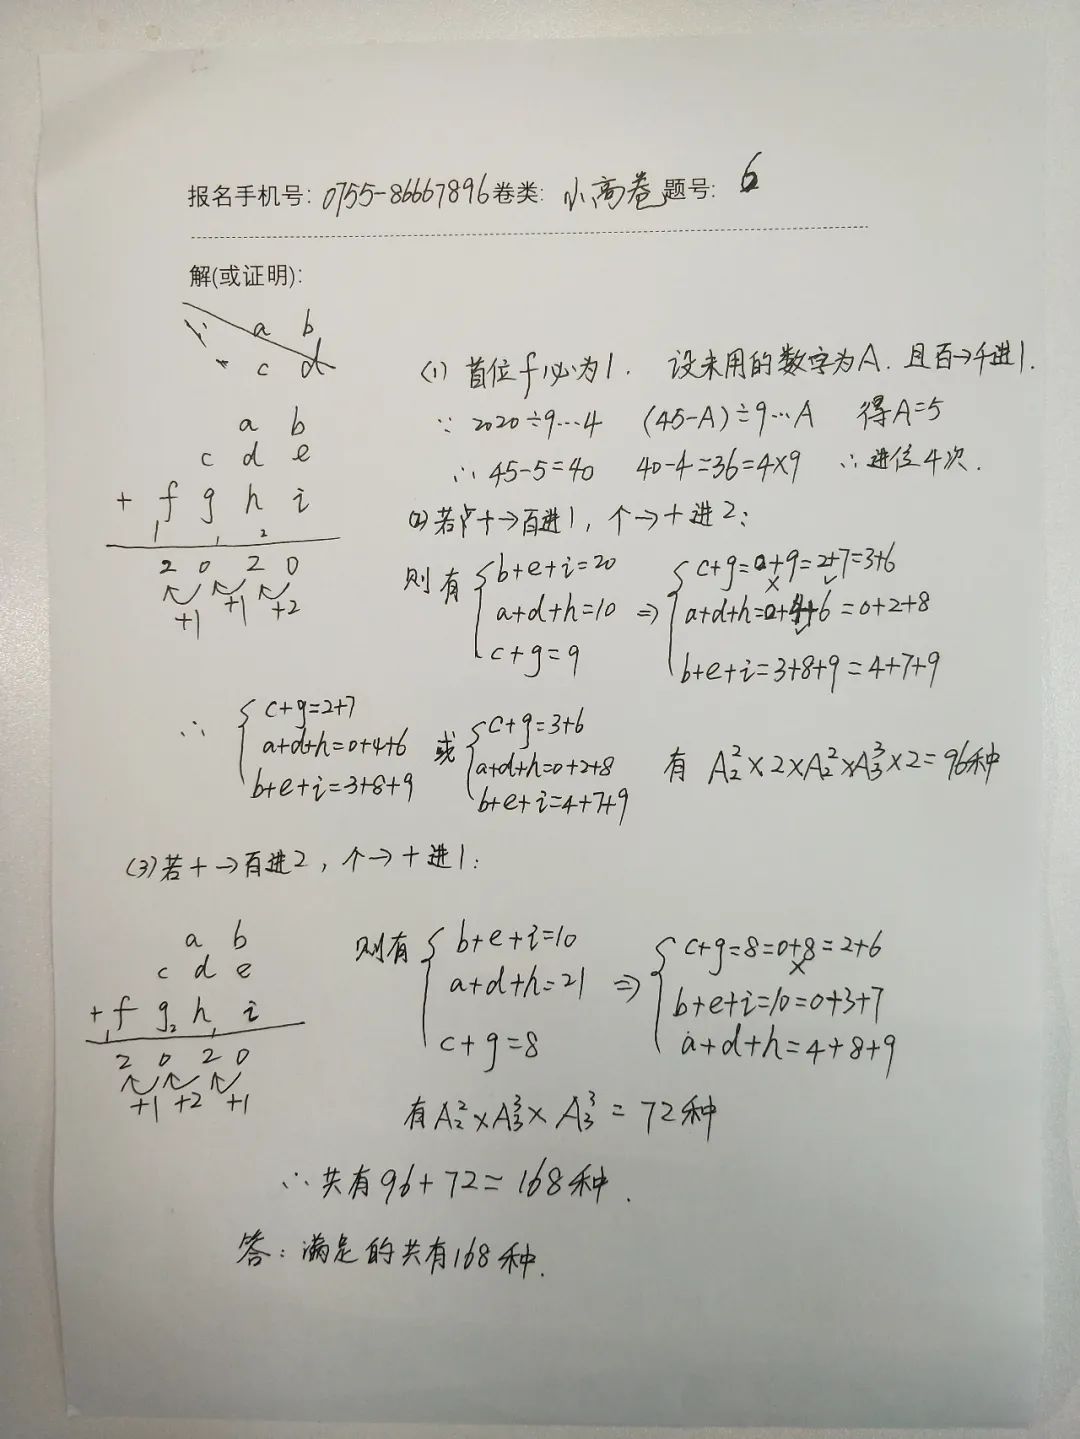 报名手机号: 0755-86667896 卷类: 小高卷 题号: 6
解(或证明):
a b
c d
(1) 首位f必为1. 设未用的数字为A. 且百→千进1.
a b
c d e
+ f g h i
1 1 2
2 0 2 0
+1 +1 +2
∵ 2020÷9…4 (45-A)÷9…A 得A=5
∴ 45-5=40 40-4=36=4×9 ∴ 进位4次.
(2) 若十→百进1, 个→十进2:
则有 { b+e+i=20 a+d+h=10 c+g=9
⇒ { c+g=0+9=2+7=3+6
× ✓
a+d+h=0+4+6=0+2+8
b+e+i=3+8+9=4+7+9
∴ { c+g=2+7 a+d+h=0+4+6 b+e+i=3+8+9
或 { c+g=3+6 a+d+h=0+2+8 b+e+i=4+7+9
有 A₂²×2×A₂²×A₃³×2=96种
(3) 若十→百进2, 个→十进1:
a b
c d e
+ f g h i
1 2 1
2 0 2 0
+1 +2 +1
则有 { b+e+i=10 a+d+h=21 c+g=8
⇒ { c+g=8=0+8=2+6
×
b+e+i=10=0+3+7
a+d+h=4+8+9
有A₂²×A₃³×A₃³=72种
∴ 共有96+72=168种.
答: 满足的共有168种.